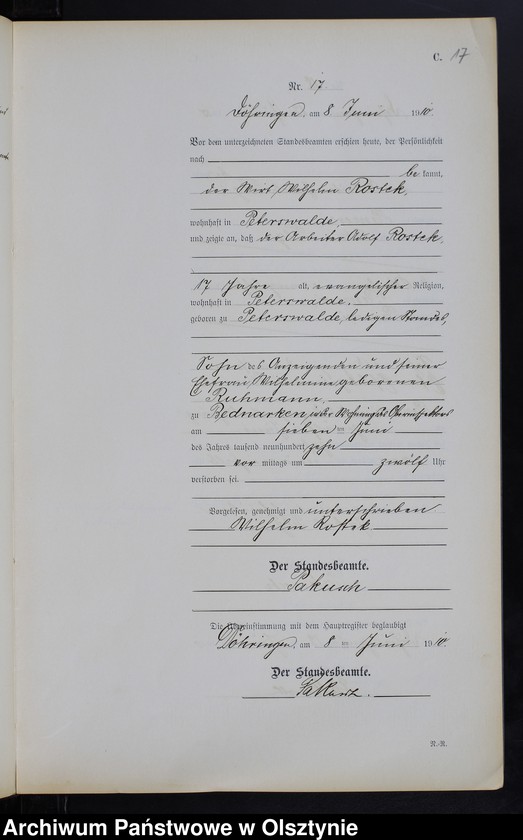 C. 17
Nr. 17
Döhringen, am 8 Juni 1910.
Vor dem unterzeichneten Standesbeamten erschien heute, der Persönlichkeit
nach
bekannt,
der Wirt Wilhelm Rostek,
wohnhaft in Peterswalde,
und zeigte an, daß der Arbeiter Adolf Rostek,
17 Jahre alt, evangelischer Religion,
wohnhaft in Peterswalde,
geboren zu Peterswalde, ledigen Standes,
Sohn des Anzeigenden und seiner
Ehefrau Wilhelmine geborenen
Ruhmann,
zu Bednarken, in der Wohnung des Oberinspektors
am sieben ten Juni
des Jahres tausend neunhundert zehn
vor mittags um zwölf Uhr
verstorben sei.
Vorgelesen, genehmigt und unterschrieben
Wilhelm Rostek
Der Standesbeamte.
Pakusch
Die Übereinstimmung mit dem Hauptregister beglaubigt
Döhringen, am 8 ten Juni 1910.
Der Standesbeamte.
N.-R.
Archiwum Państwowe w Olsztynie